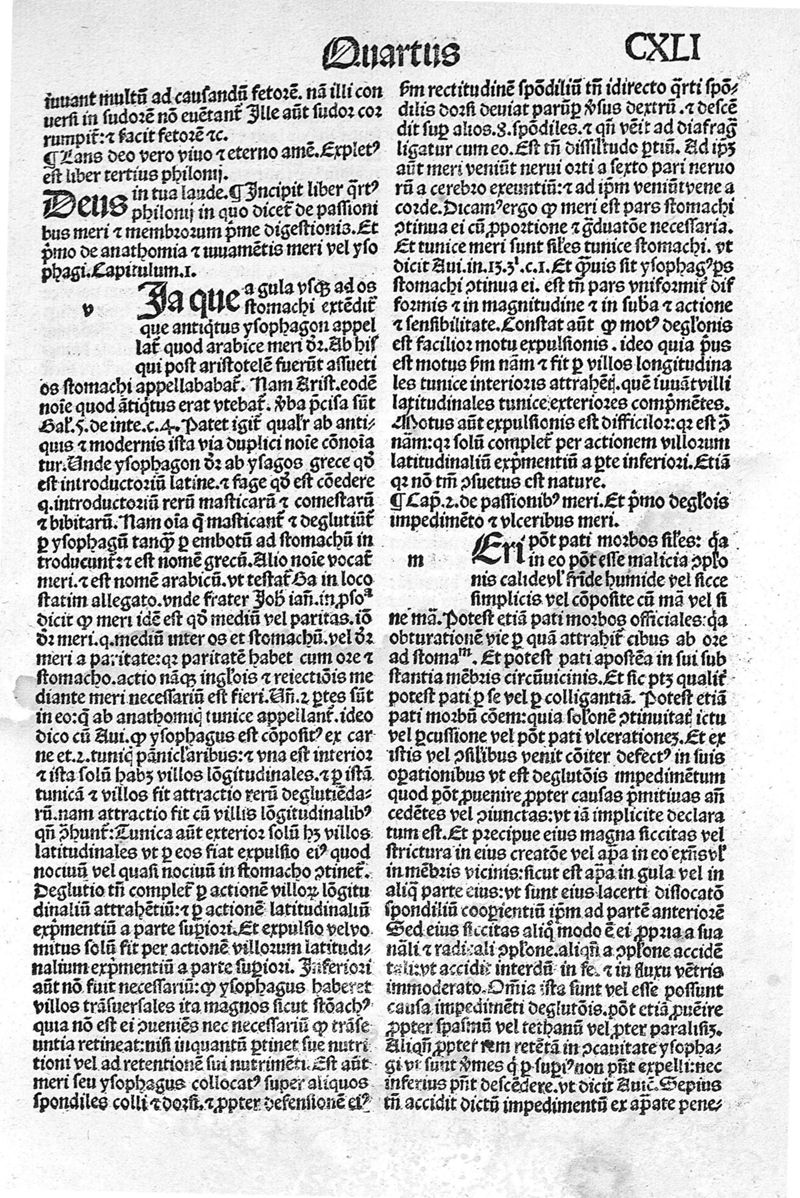 Quartus
CXLI
iuuant multū ad causandū fetorē. nā illi con
uersi in sudorē nō euētant᷑ Ille aūt sudor cor
rumpit᷑:⁊ facit fetorē ⁊c.
¶Laus deo vero viuo ⁊ eterno amē. Explet⁹
est liber tertius philonij.
Deus in tua laude.¶Incipit liber qrt⁹
philonij in quo dicet᷑ de passioni
bus meri ⁊ membrorum pme digestionis. Et
pmo de anathomia ⁊ iuuamētis meri vel yso
phagi. Capitulum.1.
v
Ia que a gula vsq ad os
stomachi extēdit᷑
que antiqtus ysophagon appel
lat᷑ quod arabice meri dr̄. Ab his
qui post aristotelē fuerūt assueti
os stomachi appellababat᷑. Nam Arist. eodē
noīe quod ātiqtus erat vtebat᷑. v̄ba pcisa sūt
Gal. 5. de inte. c. 4. Patet igit᷑ qualr ab anti-
quis ⁊ modernis ista via duplici noīe cōnoīa
tur. Unde ysophagon dr̄ ab ysagos grece qđ
est introductoriū latine. ⁊ fage qđ est cōedere
q. introductoriū rerū masticarū ⁊ comestarū
⁊ bibitarū. Nam oīa q̄ masticant᷑ ⁊ deglutiūt᷑
ꝑ ysophagū tanq̄ ꝑ embotū ad stomachū in
troducunt᷑:⁊ est nomē grecū. Alio noīe vocat᷑
meri. ⁊ est nomē arabicū. vt testat᷑ Ga in loco
statim allegato. vnde frater Joh̄ iañ. in
dicit ꝙ meri idē est qđ mediū vel paritas. iō
dr̄ meri. q. mediū inter os et stomachū. vel dr̄
meri a paritate: qr paritatē habet cum ore ⁊
stomacho. actio nāqȝ inglōis ⁊ reiectiōis me
diante meri necessariū est fieri. Uñ. 2 ptes sūt
in eo: q̄ ab anathomiq̄ tunice appellant᷑. ideo
dico cū Aui. ꝙ ysophagus est cōposit⁹ ex car
ne et. 2. tuniq̄ pāniclaribus: ⁊ vna est interior
⁊ ista solū habȝ villos lōgitudinales. ⁊ ꝑ istā
tunicā ⁊ villos fit attractio rerū deglutiēda-
rū. nam attractio fit cū villis lōgitudinalib⁹
qñ ꝯhunt᷑: Tunica aūt exterior solū hȝ villos
latitudinales vt ꝑ eos fiat expulsio ei⁹ quod
nociuū vel quasi nociuū in stomacho ꝯtinet᷑.
Deglutio tñ complet᷑ ꝑ actionē villoꝝ lōgitu
dinaliū attrahētiū: ⁊ ꝑ actionē latitudinaliū
expmentiū a parte supiori. Et expulsio vel vo
mitus solū fit per actionē villorum latitudi-
nalium expmentiū a parte supiori. Inferiori
aūt nō fuit necessariū: ꝙ ysophagus haberet
villos trāsuersales ita magnos sicut stōach⁹
quia nō est ei ꝯueniēs nec necessariū ꝙ trāse
untia retineat: nisi inquantū ptinet sue nutri
tioni vel ad retentionē sui nutrimēti. Est aūt
meri seu ysophagus collocat⁹ super aliquos
spondiles colli ⁊ dorsi. ⁊ ꝓpter defensionē ei⁹
fm rectitudinē spōdiliū tñ idirecto qrti spō-
dilis dorsi deuiat parūp v̄sus dextrū. ⁊ descē
dit sup alios. 8. spōdiles. ⁊ qñ vēit ad diafrag
ligatur cum eo. Est tñ dissiltudo ptiū. Ad ipȝ
aūt meri veniūt nerui orti a sexto pari neruo
rū a cerebro exeuntiū: ⁊ ad ipm veniūt vene a
corde. Dicam⁹ ergo ꝙ meri est pars stomachi
ꝯtinua ei cū ꝓportione ⁊ gduatōe necessaria.
Et tunice meri sunt siles tunice stomachi. vt
dicit Aui. in. 13. 3i. c. 1. Et q̄uis sit ysophag⁹ ps
stomachi ꝯtinua ei. est tñ pars vniformit᷑ dif
formis ⁊ in magnitudine ⁊ in suba ⁊ actione
⁊ sensibilitate. Constat aūt ꝙ mot⁹ deglōnis
est facilior motu expulsionis. ideo quia pus
est motus fm nām ⁊ fit ꝑ villos longitudina
les tunice interioris attrahēq̄. quē iuuāt villi
latitudinales tunice exteriores compmētes.
Motus aūt expulsionis est difficilor: qr est ꝯ
nām: qr solū complet᷑ per actionem villorum
latitudinaliū expmentiū a pte inferiori. Etiā
qr nō tm̄ ꝯsuetus est nature.
¶Cap. 2. de passionib⁹ meri. Et pmo deglōis
impedimēto ⁊ vlceribus meri.
m
Eri pōt pati morbos siles: qa
in eo pōt esse malicia ꝯplo
nis calide vl fride humide vel sicce
simplicis vel cōposite cū mā vel si
ne mā. Potest etiā pati morbos officiales: qa
obturationē vie ꝑ quā attrahit᷑ cibus ab ore
ad stomaᵐ. Et potest pati apostēa in sui sub
stantia mēbris circūuicinis. Et sic ptȝ qualit᷑
potest pati ꝑ se vel ꝑ colligantiā. Potest etiā
pati morbū cōem: quia solonē ꝯtinuitaq̄ ictu
vel pcussione vel pōt pati vlcerationeȝ. Et ex
istis vel ꝯsilibus venit cōiter defect⁹ in suis
opationibus vt est deglutōis impedimētum
quod pōt ꝓuenire ꝓpter causas pmitiuas añ
cedētes vel ꝯiunctas: vt iā implicite declara
tum est. Et precipue eius magna siccitas vel
strictura in eius creatōe vel apa in eo exñs vl
in mēbris vicinis: sicut est apa in gula vel in
aliq̄ parte eius: vt sunt eius lacerti dislocatō
spondiliū cooperientiū ipm ad partē anteriorē
Sed eius siccitas aliq̄ modo ē ei ꝓpria a sua
nāli ⁊ radicali ꝯplone. aliqñ a ꝯplone accidē
tali: vt accidit interdū in fe. ⁊ in fluxu vētris
immoderato. Oīmia ista sunt vel esse possunt
causa impedimēti deglutōis. pōt etiā ꝓuēire
ꝓpter spasmū vel tethanū vel ꝓpter paralisiȝ.
Aliqñ ꝓpter rem retētā in ꝯcauitate ysopha-
gi vt sunt v̄mes q̄ ꝑ supi⁹ non pñt expelli: nec
inferius pñt descēdere. vt dicit Auic̄. Sepius
tñ accidit dictū impedimentū ex apate pene-